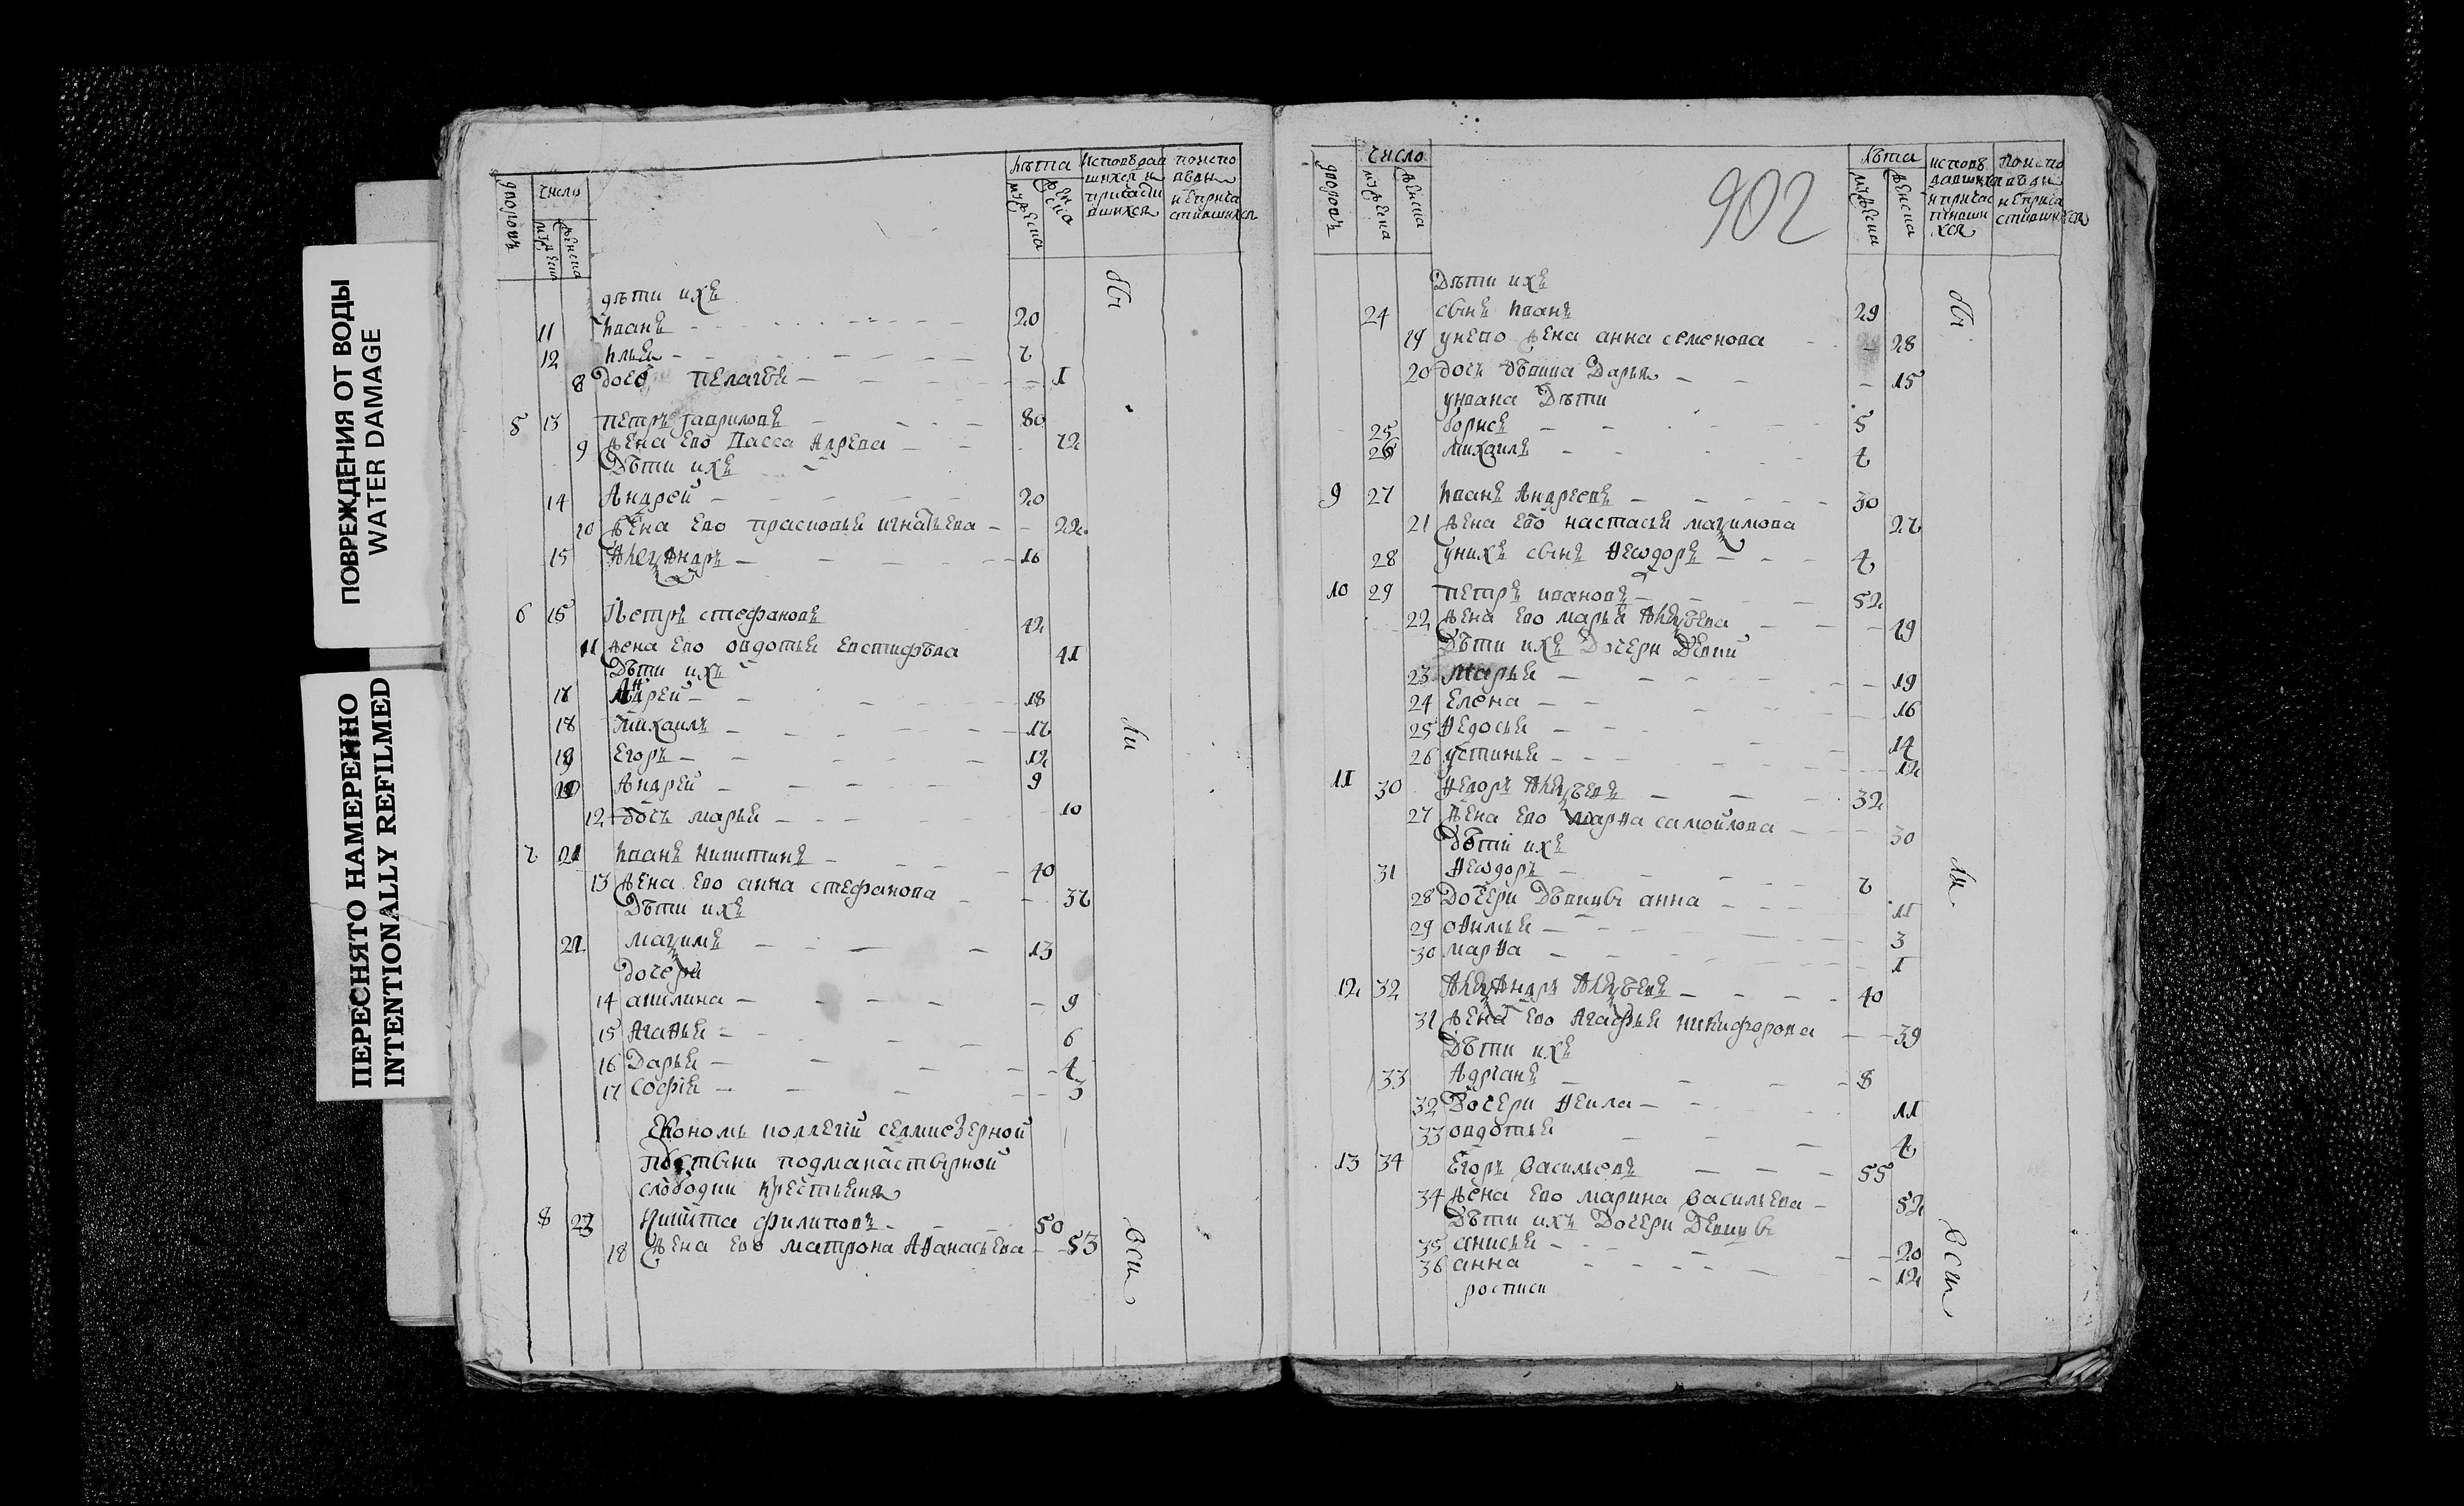 ПОВРЕЖДЕНИЯ ОТ ВОДЫ
WATER DAMAGE
ПЕРЕСНЯТО НАМЕРЕННО
INTENTIONALLY REFILMED
дворовъ
число
мужеска
женска
лѣта
мужеска
женска
исповѣдав
шихся и
причасти
вшихся
поиспо
вѣди
неприча
стившихся
дѣти ихъ
11 Іванъ 20
12 Илья 7
8 дочь Пелагѣя 1
5 13 Петръ Гавриловъ 80
9 жена ево Васса 72
Дѣти ихъ
14 Андрей 20
10 жена ево Прасковья Игнатьева 22
15 Алеѯандръ 16
6 15 Петръ Стефановъ 42
11 жена ево Овдотья Евстифѣва 41
Дѣти ихъ
Андрей 18
18 Михаилъ 17
19 Егоръ 12
20 Андрей 9
12 дочь Марья 10
7 21 Іванъ Никитинъ 40
13 жена ево Анна Стефанова 37
Дѣти ихъ
Маѯимъ 13
дочери
14 Акилина 9
15 Агаѳья 6
16 Дарья 4
17 Софія 3
Економъ коллегіи седмиезерной
пустыни подманастырной
слободки крестьяня
8 23 Никита Филиповъ 50
18 жена ево Матрона Аѳанасьева 53
бы
ли
вси
902
дворовъ
число
мужеска
женска
лѣта
мужеска
женска
исповѣ
давшихся
и причас
тивши
хся
поиспо
вѣди
неприча
стившихся
Дѣти ихъ
24 сынъ Іванъ 29
19 у него жена Анна Семенова 28
20 дочь дѣвка Дарья 15
у Ивана Дѣти
25 Борисъ 5
26 Михаилъ 4
9 27 Іванъ Андреевъ 30
21 жена ево Настасья Маѯимова 27
28 у нихъ сынъ Ѳеѡдоръ 4
10 29 Петръ Ивановъ 52
22 жена ево Марья Алеѯѣева 49
Дѣти ихъ Дочери Дѣвки
23 Марья 19
24 Елена 16
25 Ѳедосья 14
26 Устинья 12
11 30 Ѳедоръ Алеѯѣевъ 32
27 жена ево Марѳа Самойлова 30
Дѣти ихъ
31 Ѳеѡдоръ 7
28 Дочери Дѣвицы Анна 11
29 Оѳимья 3
30 Марѳа 1
12 32 Алеѯандръ Алеѯѣевъ 40
31 жена ево Агафья Никифорова 39
Дѣти ихъ
33 Адріанъ 8
32 Дочери Ѳекла 11
33 Овдотья 4
13 34 Егоръ Васильевъ 55
34 жена ево Марина Васильева 52
Дѣти ихъ Дочери Дѣвицы
35 Анисья 20
36 Анна 12
росписи
бы
ли
вси